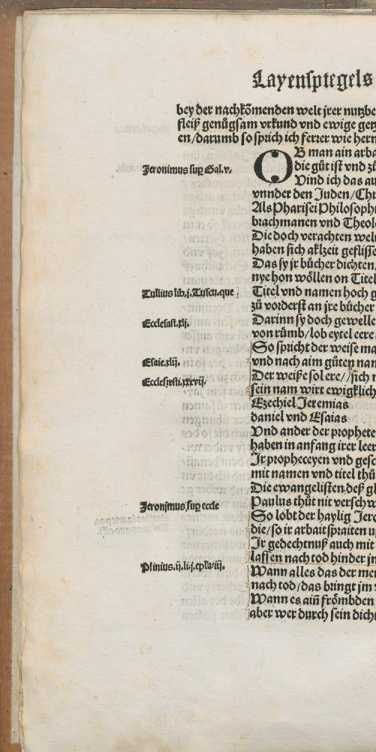 Layenspiegels
bey der nachkōmenden welt jrer nutzbe
fleiß genůgsam vrkund vnd ewige getz
en/darumb so sprich ich ferrer wie hern
Jeronimus sup Gal.v.
OB man ain arba
die gůt ist vnd zů
Vind ich das au
vnnder den Juden/Ch
Als Pharisei Philosoph
brachmanen vnd Theol
Die doch verachten welt
haben sich alzeit geflisse
Das sy jr bůcher dichten.
nye hon wöllen on Titel
Tullius lib.j.Tuscu.que
Titel vnd namen hoch g
zů vorderst an jre bůcher
Ecclesiast.xij.
Darinn sy doch gewelle
von růmb/lob eytel eere
So spricht der weise ma
Esaie.xlij.
vnd nach aim gůten nam
Ecclesiasti.xxxvij.
Der weiße sol ere//sich
sein nam wirt ewigklich
Ezechiel Jeremias
daniel vnd Esaias
Vnd ander der prophete
haben in anfang irer leer
Jr propheceyen vnd gesc
mit namen vnd titel thů
Die ewangelisten.deß gl
Jeronjmus sup eccle
Paulus thůt nit versch w
So lobt der haylig Jero
die/so ir arbait spraiten
Jr gedechtnuß auch mit
lassen nach tod hinder jn
Plinius.ij.li.j.eplaviij.
Wann alles das der men
nach tod/das bringt jm
Wann es ain frömbden
aber wer durch sein dicht